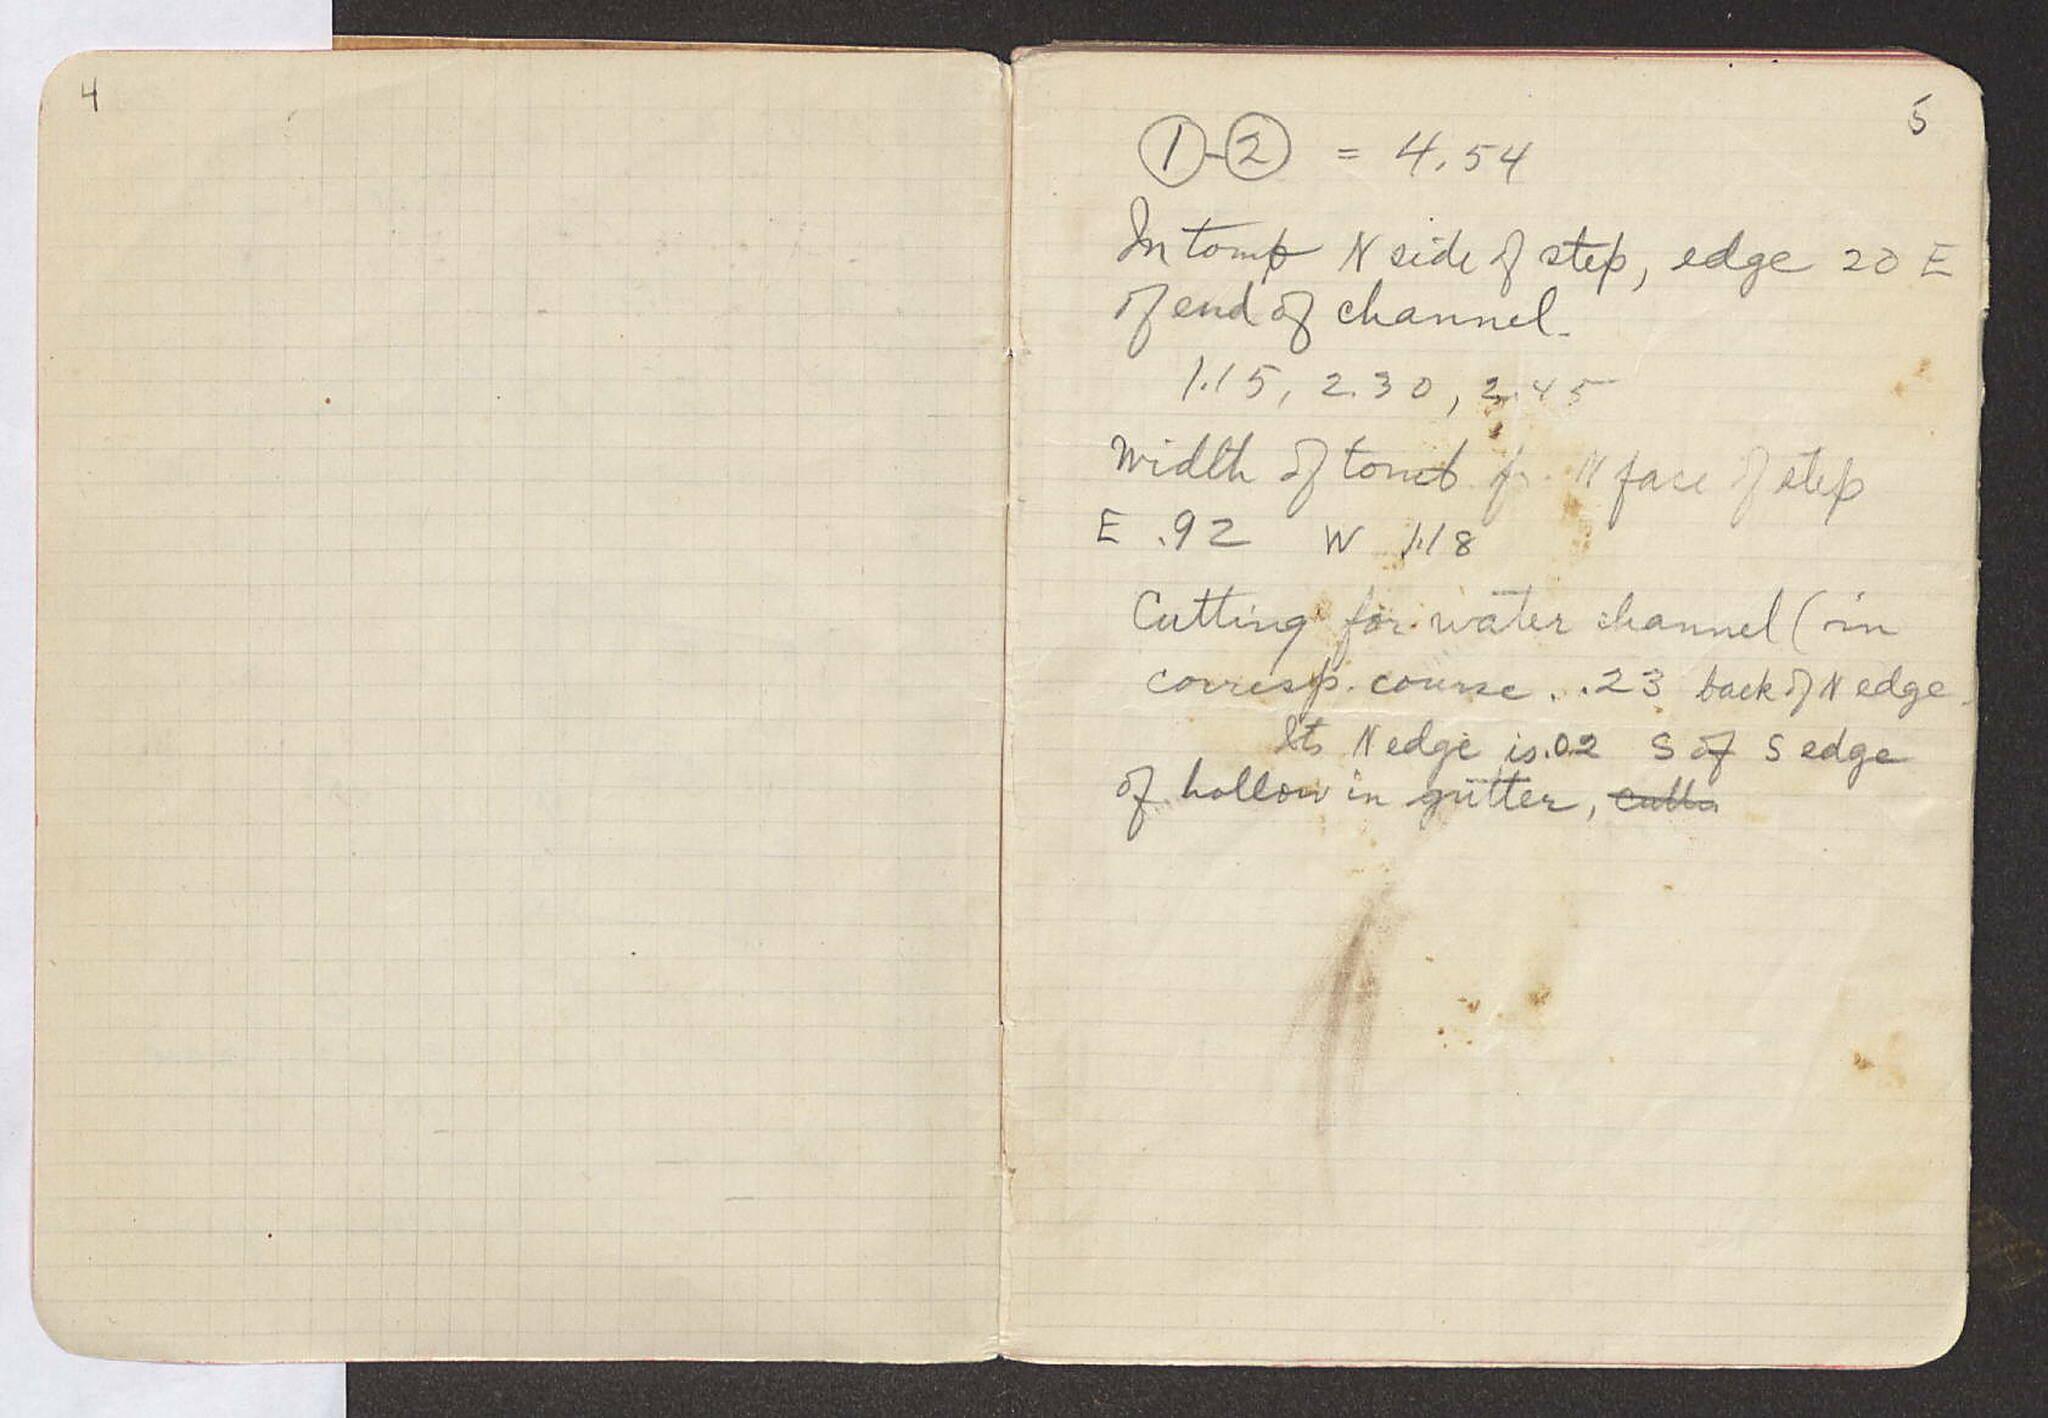 4
5
1 - 2 = 4.54
In tomb N side of step, edge 20 E
of end of channel.
1.15, 2.30, 2.45
Width of tomb fr. N face of step
E .92 W 1.18
Cutting for water channel (in
corresp. course . .23 back of N edge.
Its N edge is .02 S of S edge
of hollow in gutter,